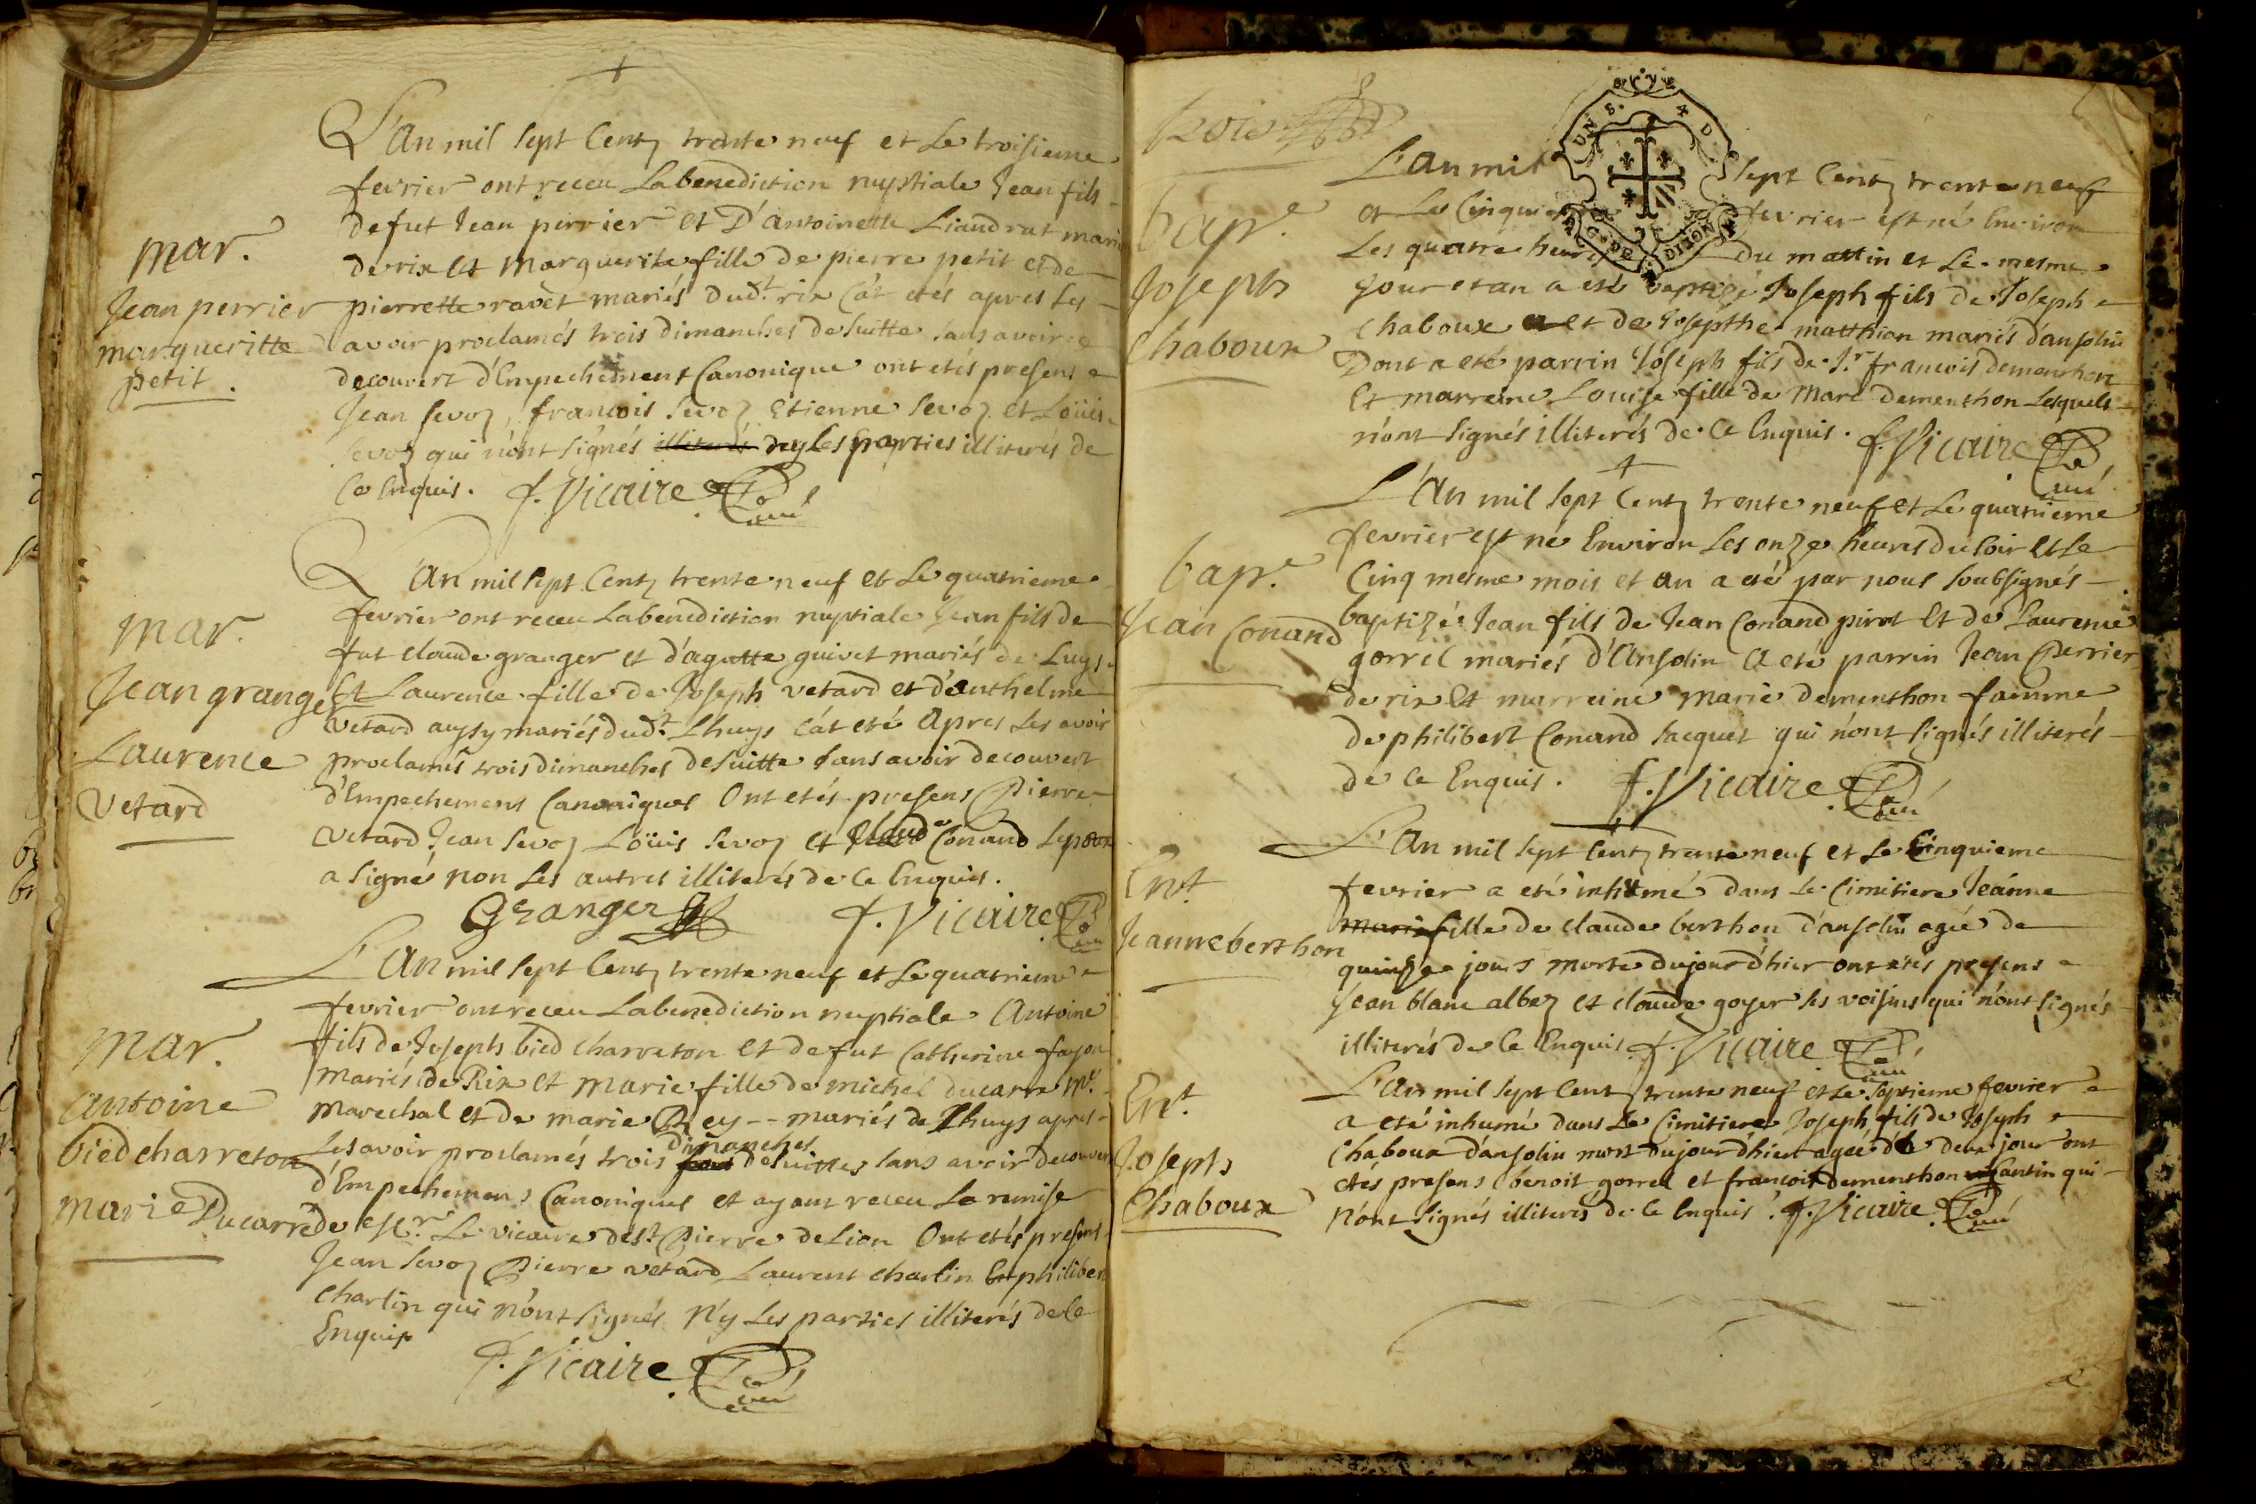 L'An mil sept Cent trente neuf et Le troisieme
fevrier ont receu La benediction nuptiale Jean fils
de fut Jean perrier et D'antoinette Liaudrat mariés
de rix Et Marguerite fille de pierre petit et de
pierrette ravet mariés dud.t rix Cát etes apres Les
avoir proclamés trois dimanches de suitte sans avoir
decouvert d'Empechement Canonique ont etés presens
Jean sevoz, francois sevoz Etienne sevoz et Loüis
sevoz qui n'ont signés illiterés ny Les parties illiterés de
Ce Enquis. f. Vicaire Curé
mar.
Jean perrier
margueritte
petit.
L'An mil sept Cent trente neuf et Le quatrieme
fevrier ont receu La benediction nuptiale Jean fils de
fut claude granger et d'agatte quivet mariés de Luys
Et Laurence fille de Joseph vetard et d'Anthelme
vetard aussy mariés dud.t Lhuys cát eté Apres Les avoir
proclamés trois dimanches de suitte sans avoir decouvert
d'Empechemens Canoniques Ont etés presens Pierre
vetard Jean sevoz Loüis sevoz et Claude Conand Lepoux
a signé non Les autres illiterés de Ce Enquis.
Granger f. Vicaire Curé
mar.
Jean grange
Laurence
vetard
L'An mil sept Cent trente neuf et Le quatrieme
fevrier ont receu La benediction nuptiale Antoine
fils de Joseph bied charreton et de fut Catherine fajon
mariés de Rix et Marie fille de michel ducarre M.e
marechal et de marie Rey -- mariés de Lhuys apres
Les avoir proclamés trois dimanches de suittes sans avoir decouvert
d'Empechemens Canoniques et ayant receu La remise
de Mr. Le vicaire de s.t Pierre de Lion Ont etés presens
Jean sevoz Pierre vetard Laurent charlin Et philibert
charlin qui n'ont signés n'y Les parties illiterés de Ce
Enquis
f. Vicaire Curé
mar.
Antoine
bied charreton
Marie Ducarre
L'an mil sept Cent trente neuf
et Le Cinquieme fevrier est né Environ
Les quatre heures du mattin et Le mesme
Jour et an a eté baptizé Joseph fils de Joseph
Chaboux et de Josepthe matthion mariés d'ansolin
Dont a eté parrin Joseph fils de S.r francois dementhon
Et marreine Louise fille de Marc dementhon Lesquels
n'ont signés illiterés de Ce Enquis. f. Vicaire Curé
bap.e
Joseph
Chaboux
L'An mil sept Cent trente neuf et Le quatrieme
fevrier est né Environ Les onze heures du soir Et Le
Cinq mesme mois et an a eté par nous soubsignés
baptizé Jean fils de Jean Conand pirot Et de Laurence
gorrel mariés d'Ansolin A eté parrin Jean Perrier
de rix Et marreine Marie dementhon famme
de philibert Conand Jacquet qui n'ont signés illiterés
de Ce Enquis. f. Vicaire Curé
bap.e
Jean Conand
L'An mil sept Cent trente neuf et Le Cinquieme
fevrier a eté inhumé dans Le Cimitiere Jeanne
marie fille de claude berthon d'ansolin agée de
quinze jours morte dujourd'hier ont etés presens
Jean blanc albez et claude goyer ses voisins qui n'ont signés
illiterés de Ce Enquis f. Vicaire Curé
Ent.
Jeanne berthon
L'An mil sept Cent trente neuf et Le septieme fevrier
a eté inhumé dans Le Cimitiere Joseph fils de Joseph
Chaboux d'ansolin mort dujourd'hier ageé de deux jour ont
etés presens benoit gorrel et francois dementhon Santin qui
n'ont signés illiterés de Ce Enquis. f. Vicaire Curé
Ent.
Joseph
Chaboux